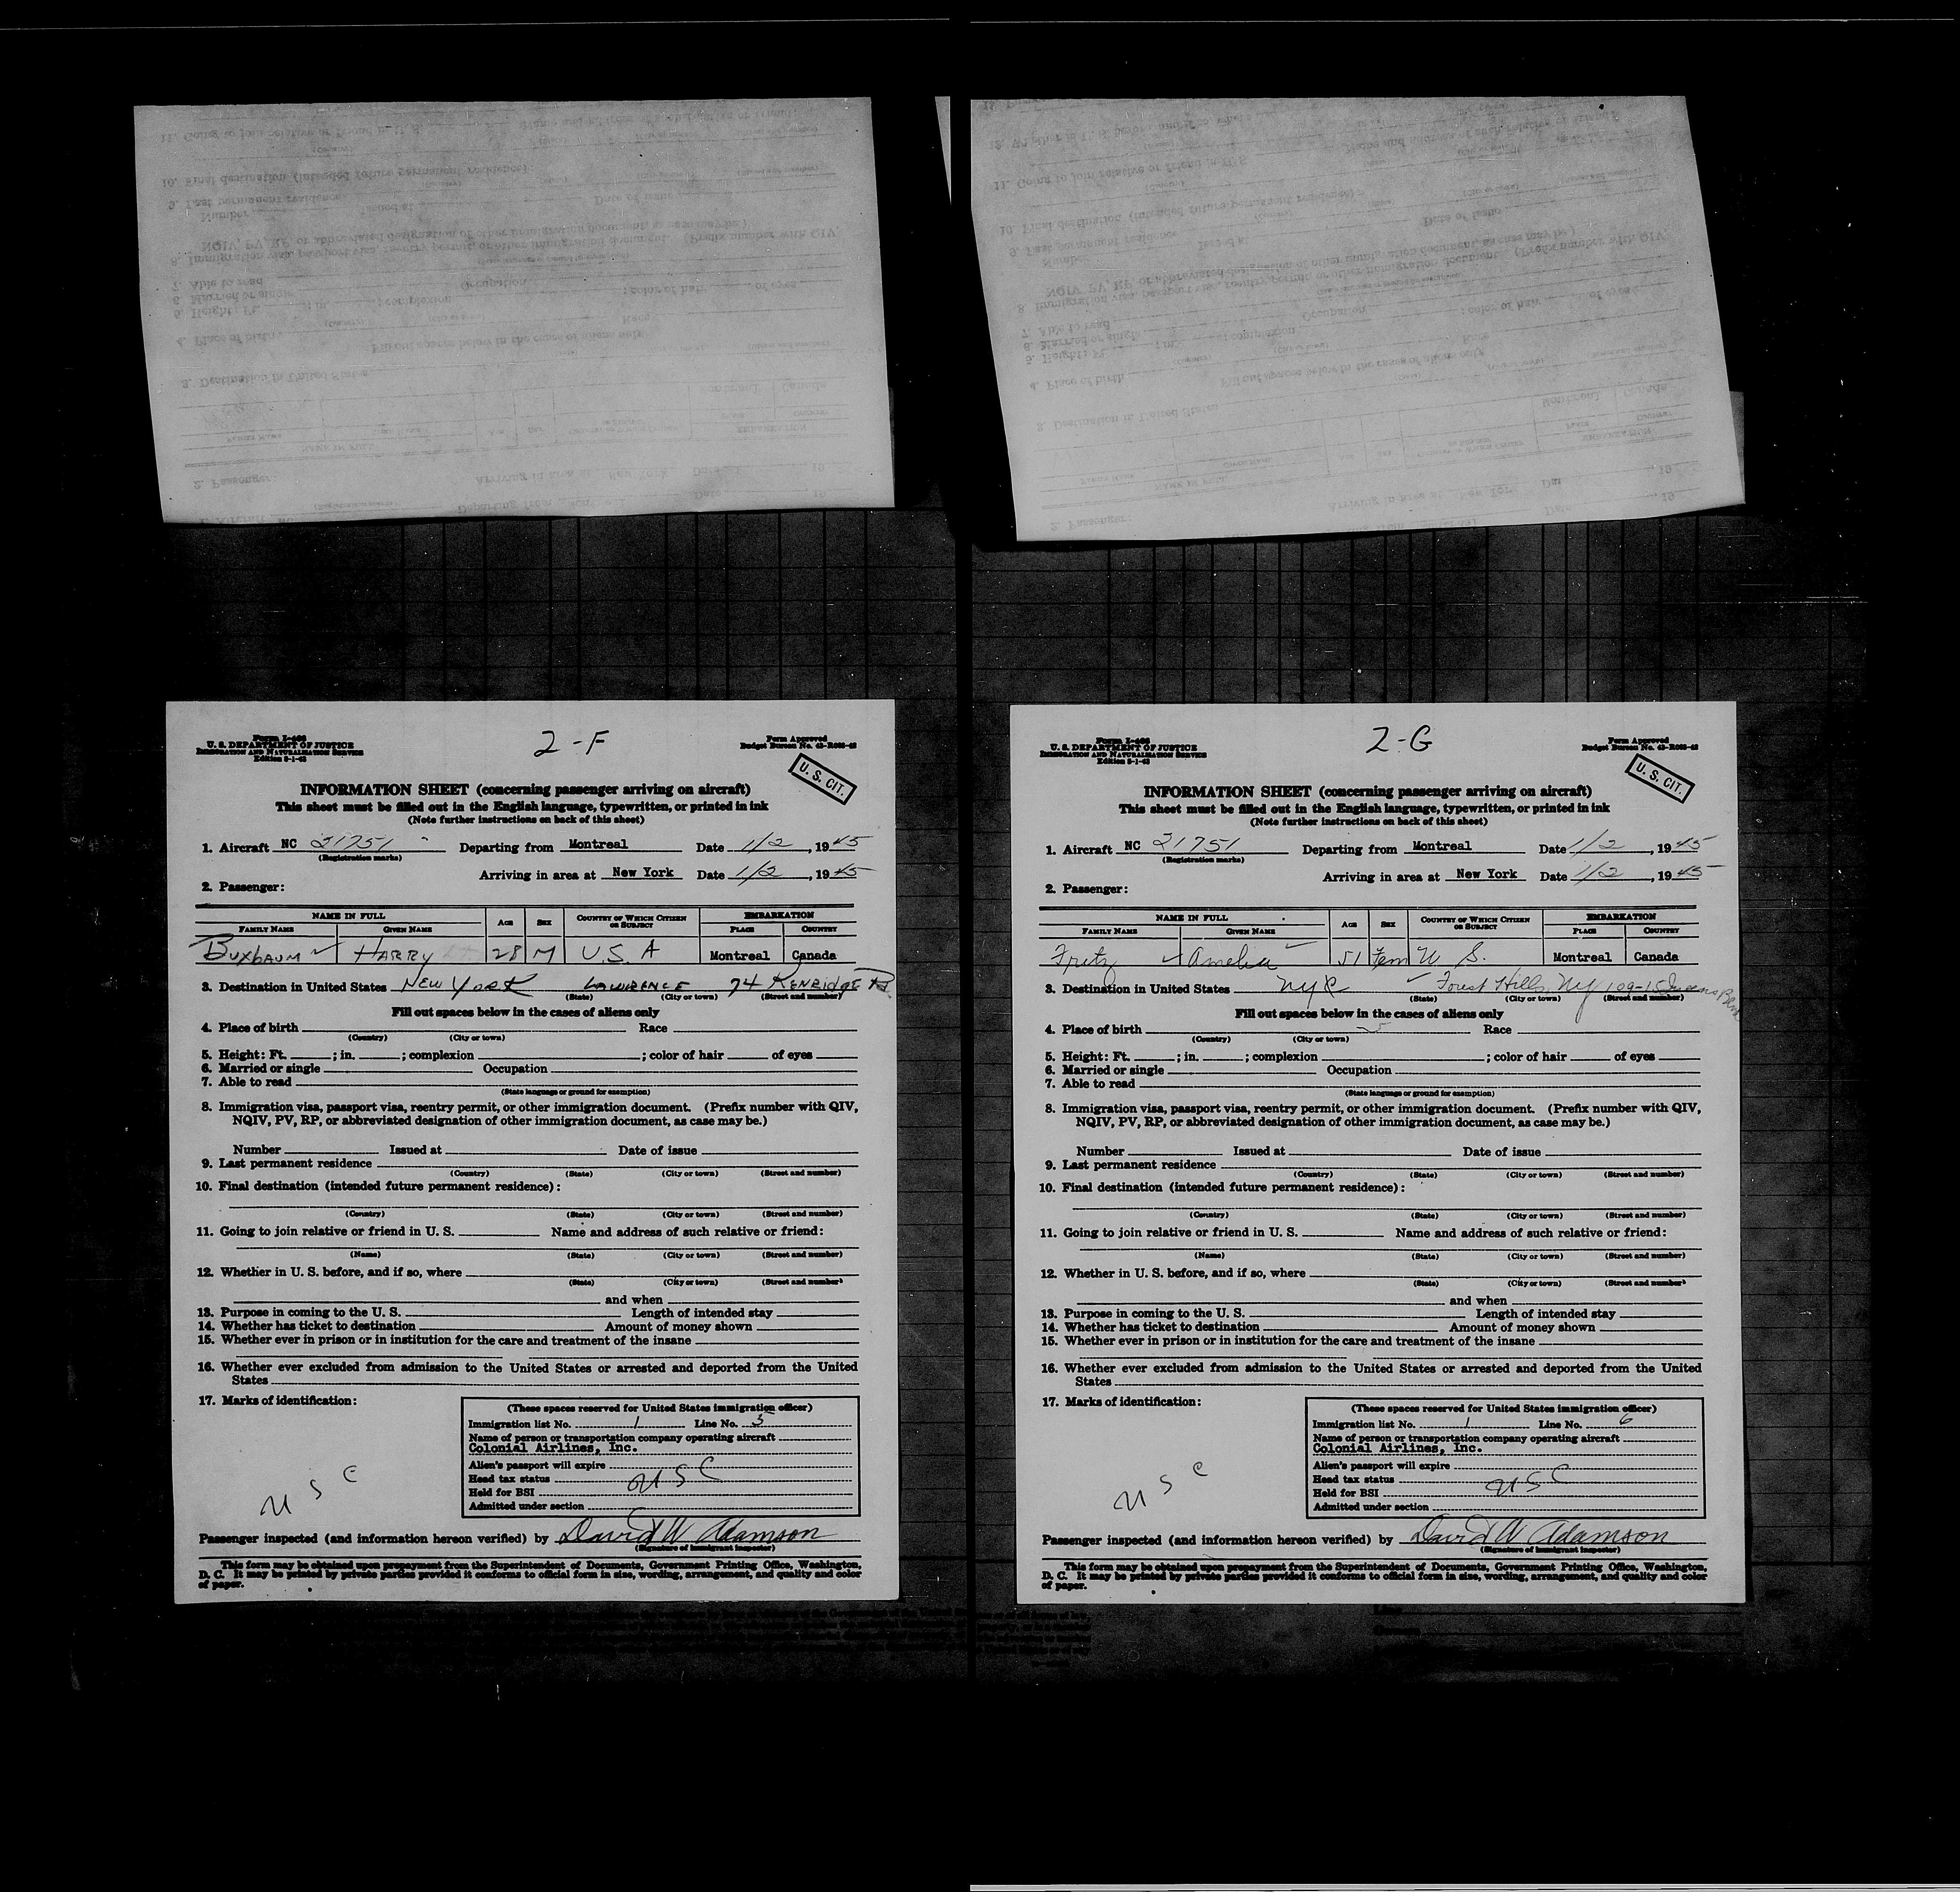 Form I-466
U. S. DEPARTMENT OF JUSTICE
IMMIGRATION AND NATURALIZATION SERVICE
Edition 5-1-43
2-F
Form Approved
Budget Bureau No. 43-R065-42
U. S. CIT.
INFORMATION SHEET (concerning passenger arriving on aircraft)
This sheet must be filled out in the English language, typewritten, or printed in ink
(Note further instructions on back of this sheet)
1. Aircraft NC 21751 Departing from Montreal Date 1/2, 1945
(Registration marks)
Arriving in area at New York Date 1/2, 1945
2. Passenger:
NAME IN FULL AGE SEX COUNTRY OF WHICH CITIZEN OR SUBJECT EMBARKATION
FAMILY NAME GIVEN NAME PLACE COUNTRY
Buxbaum HARRY 28 M U.S.A Montreal Canada
3. Destination in United States NEW YORK LAWRENCE 74 KENRIDGE Rd
(State) (City or town) (Street and number)
Fill out spaces below in the cases of aliens only
4. Place of birth Race
(Country) (City or town)
5. Height: Ft. ; in. ; complexion ; color of hair of eyes
6. Married or single Occupation
7. Able to read
(State language or ground for exemption)
8. Immigration visa, passport visa, reentry permit, or other immigration document. (Prefix number with QIV,
NQIV, PV, RP, or abbreviated designation of other immigration document, as case may be.)
Number Issued at Date of issue
9. Last permanent residence
(Country) (State) (City or town) (Street and number)
10. Final destination (intended future permanent residence):
(Country) (State) (City or town) (Street and number)
11. Going to join relative or friend in U. S. Name and address of such relative or friend:
(Name) (State) (City or town) (Street and number)
12. Whether in U. S. before, and if so, where
(State) (City or town) (Street and number)
and when
13. Purpose in coming to the U. S. Length of intended stay
14. Whether has ticket to destination Amount of money shown
15. Whether ever in prison or in institution for the care and treatment of the insane
16. Whether ever excluded from admission to the United States or arrested and deported from the United
States
17. Marks of identification:
(These spaces reserved for United States immigration officer)
Immigration list No. 1 Line No. 5
Name of person or transportation company operating aircraft
Colonial Airlines, Inc.
Alien's passport will expire
Head tax status USC
Held for BSI
Admitted under section
U S C
Passenger inspected (and information hereon verified) by David W Adamson
(Signature of immigrant inspector)
This form may be obtained upon prepayment from the Superintendent of Documents, Government Printing Office, Washington,
D. C. It may be printed by private parties provided it conforms to official form in size, wording, arrangement, and quality and color
of paper.
Form I-466
U. S. DEPARTMENT OF JUSTICE
IMMIGRATION AND NATURALIZATION SERVICE
Edition 5-1-43
2-G
Form Approved
Budget Bureau No. 43-R065-42
U. S. CIT.
INFORMATION SHEET (concerning passenger arriving on aircraft)
This sheet must be filled out in the English language, typewritten, or printed in ink
(Note further instructions on back of this sheet)
1. Aircraft NC 21751 Departing from Montreal Date 1/2, 1945
(Registration marks)
Arriving in area at New York Date 1/2, 1945
2. Passenger:
NAME IN FULL AGE SEX COUNTRY OF WHICH CITIZEN OR SUBJECT EMBARKATION
FAMILY NAME GIVEN NAME PLACE COUNTRY
Fritz Amelia 51 Fem U S. Montreal Canada
3. Destination in United States Forest Hills, NY 109-15 Queens Blvd
(State) (City or town) (Street and number)
Fill out spaces below in the cases of aliens only
4. Place of birth Race
(Country) (City or town)
5. Height: Ft. ; in. ; complexion ; color of hair of eyes
6. Married or single Occupation
7. Able to read
(State language or ground for exemption)
8. Immigration visa, passport visa, reentry permit, or other immigration document. (Prefix number with QIV,
NQIV, PV, RP, or abbreviated designation of other immigration document, as case may be.)
Number Issued at Date of issue
9. Last permanent residence
(Country) (State) (City or town) (Street and number)
10. Final destination (intended future permanent residence):
(Country) (State) (City or town) (Street and number)
11. Going to join relative or friend in U. S. Name and address of such relative or friend:
(Name) (State) (City or town) (Street and number)
12. Whether in U. S. before, and if so, where
(State) (City or town) (Street and number)
and when
13. Purpose in coming to the U. S. Length of intended stay
14. Whether has ticket to destination Amount of money shown
15. Whether ever in prison or in institution for the care and treatment of the insane
16. Whether ever excluded from admission to the United States or arrested and deported from the United
States
17. Marks of identification:
(These spaces reserved for United States immigration officer)
Immigration list No. 1 Line No. 6
Name of person or transportation company operating aircraft
Colonial Airlines, Inc.
Alien's passport will expire
Head tax status USC
Held for BSI
Admitted under section
U S C
Passenger inspected (and information hereon verified) by David W Adamson
(Signature of immigrant inspector)
This form may be obtained upon prepayment from the Superintendent of Documents, Government Printing Office, Washington,
D. C. It may be printed by private parties provided it conforms to official form in size, wording, arrangement, and quality and color
of paper.